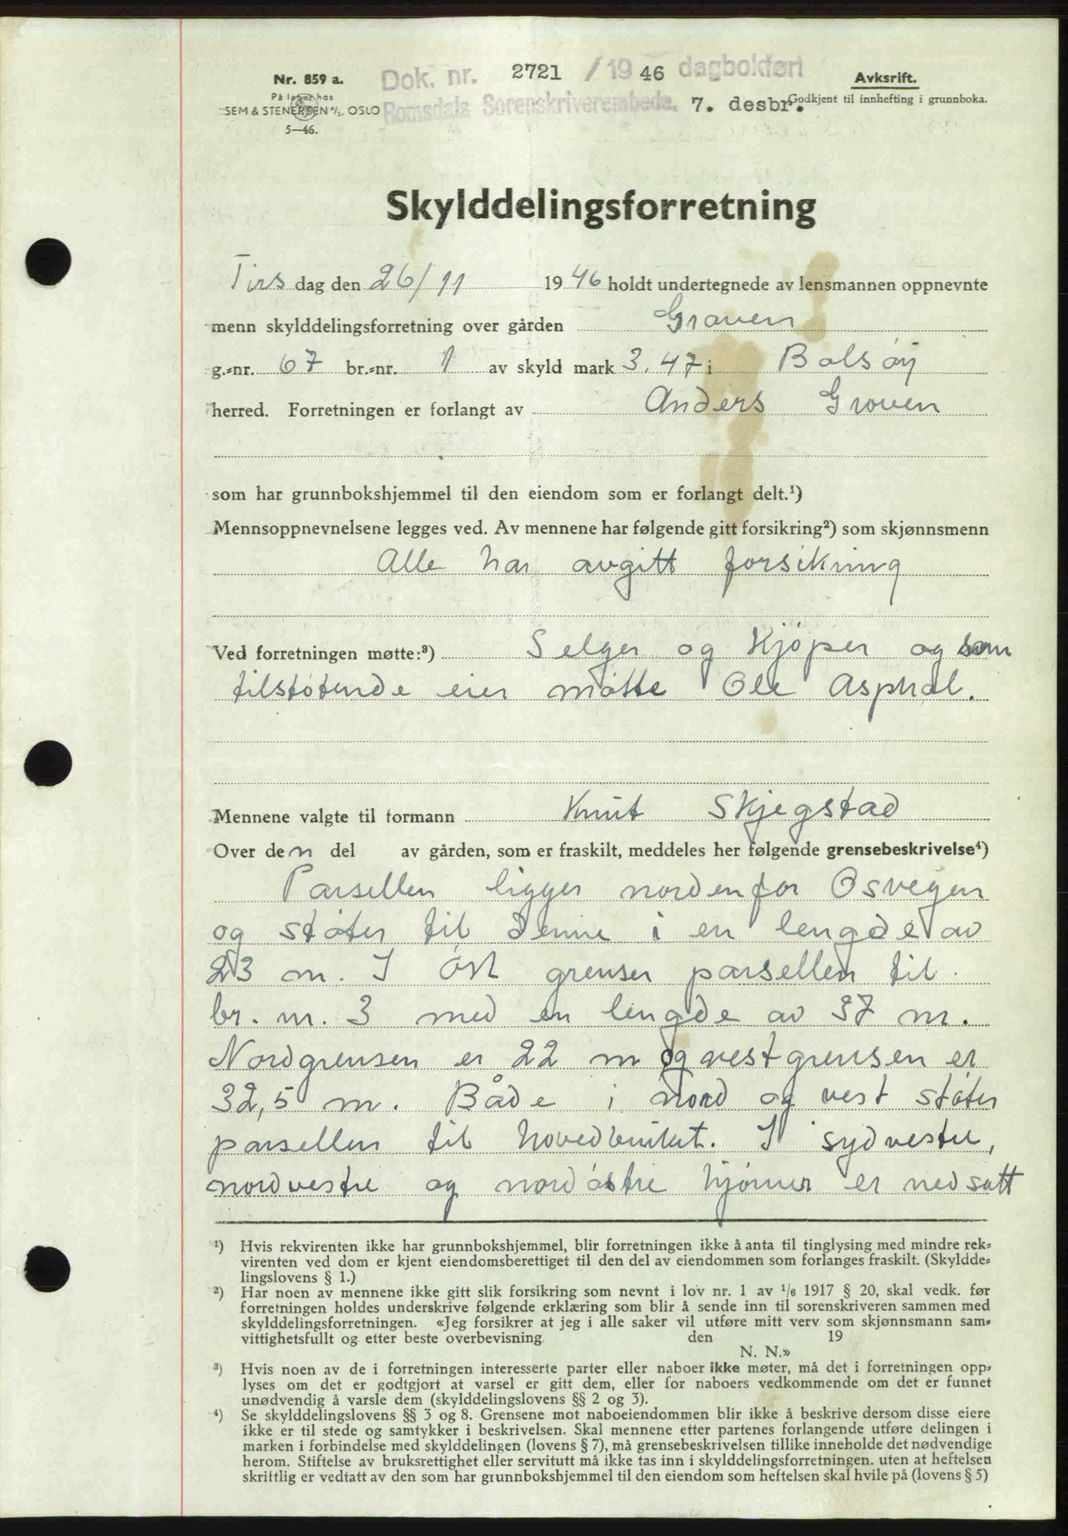 Nr. 859 a.
På lager hos
SEM & STENERSEN A/S. OSLO
5—46.
Dok. nr. 2721 /19 46 dagbokført
Romsdals Sorenskriverembede. 7. desbr.
Avskrift.
Godkjent til innhefting i grunnboka.
Skylddelingsforretning
Tirs dag den 26/11 1946 holdt undertegnede av lensmannen oppnevnte
menn skylddelingsforretning over gården Groven
g.-nr. 67 br.-nr. 1 av skyld mark 3.47 i Bolsøy
herred. Forretningen er forlangt av Anders Groven
som har grunnbokshjemmel til den eiendom som er forlangt delt.¹)
Mennsoppnevnelsene legges ved. Av mennene har følgende gitt forsikring²) som skjønnsmenn
Alle har avgitt forsikring
Ved forretningen møtte:³) Selger og kjøper og som
tilstøtende eier møtte Ole Asphol.
Mennene valgte til formann Knut Skjegstad
Over den del av gården, som er fraskilt, meddeles her følgende grensebeskrivelse⁴)
Parsellen ligger nordenfor Osvegen
og støter til denne i en lengde av
23 m. I øst grenser parsellen til
br. nr. 3 med en lengde av 37 m.
Nordgrensen er 22 m og vestgrensen er
32,5 m. Både i nord og vest støter
parsellen til hovedbruket. I sydvestre,
nordvestre og nordøstre hjørner er nedsatt
¹) Hvis rekvirenten ikke har grunnbokshjemmel, blir forretningen ikke å anta til tinglysing med mindre rek-
virenten ved dom er kjent eiendomsberettiget til den del av eiendommen som forlanges fraskilt. (Skyldde-
lingslovens § 1.)
²) Har noen av mennene ikke gitt slik forsikring som nevnt i lov nr. 1 av 1/6 1917 § 20, skal vedk. før
forretningen holdes underskrive følgende erklæring som blir å sende inn til sorenskriveren sammen med
skylddelingsforretningen. «Jeg forsikrer at jeg i alle saker vil utføre mitt verv som skjønnsmann sam-
vittighetsfullt og etter beste overbevisning. den 19
N. N.»
³) Hvis noen av de i forretningen interesserte parter eller naboer ikke møter, må det i forretningen opp-
lyses om det er godtgjort at varsel er gitt dem, eller for naboers vedkommende om det er funnet
unødvendig å varsle dem (skylddelingslovens §§ 2 og 3).
⁴) Se skylddelingslovens §§ 3 og 8. Grensene mot naboeiendommen blir ikke å beskrive dersom disse eiere
ikke er til stede og samtykker i beskrivelsen. Skal mennene etter partenes forlangende utføre delingen i
marken i forbindelse med skylddelingen (lovens § 7), må grensebeskrivelsen tillike inneholde det nødvendige
herom. Stiftelse av bruksrettighet eller servitutt må ikke tas inn i skylddelingsforretningen. uten at heftelsen
skriftlig er vedtatt av den som har grunnbokshjemmel til den eiendom som heftelsen skal hvile på (lovens § 5)